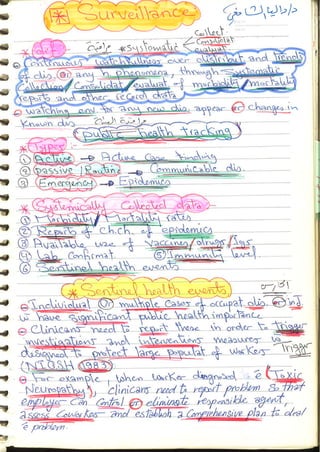 * Surveillance
د/داليا الشافعي
* def
* systematic
مراقبة
Collect
Consolidat
evaluat
Continuous watchfulness over distribut and trends
of dis. or any h phenomena, through systematic
Collection / Consolidat / evaluat of morbidity / mortality
reports and other record data
watching env for any new dis. appear or changes in
known dis.
public health tracking
* Types
① Active → Active case finding
② passive / Routine → Communicable dis
③ Emergency → Epidemics
* Systemically Collected data
① Morbidity / Mortality rates
② Reports of ch.ch. of epidemics
③ Available use of vaccines / drugs / Igs
④ Lab Confirmat. ⑤ Immunity level
⑥ Sentinel health events
* Sentinel health events
Individual or multiple Cases of occupat dis or ind
w have significant public health importance
Clinicians need to report these in order to trigger
investigations and interventions measures
designed to protect large populat of workers
Trigger
(NIOSH 1983)
For example, when worker diagnosed ē (Toxic
Neuropathy), clinicians need to report problem so that
employer can control or eliminate responsible agent,
assess Coworkers and establish a Comprehensive plan to deal
ē problem.